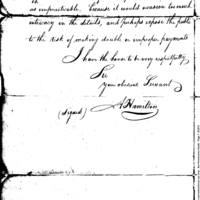 as impracticable. because it would occasion too much
intricacy in the details, and perhaps expose the public
to the risk of making double or improper payments
I have the honor to be very respectfully
Sir
your obedient Servant
(signed) A Hamilton